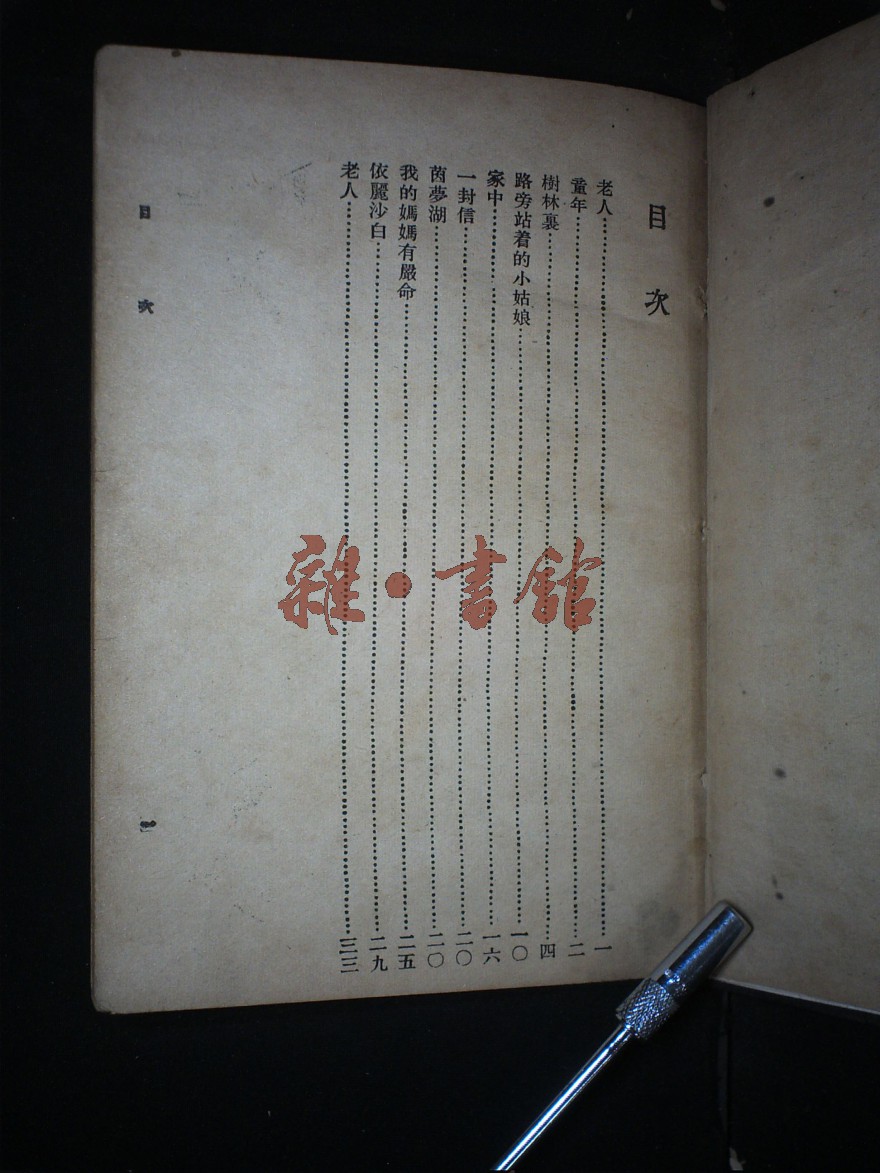 目次
老人……一
童年……二
樹林裏……四
路旁站着的小姑娘……一〇
家中……一六
一封信……二〇
茵夢湖……二〇
我的媽媽有嚴命……二五
依麗沙白……二九
老人……三三
目次
一
雜·書館